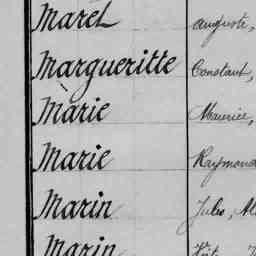 Maret Auguste,
Margueritte Constant,
Màrie Maurice,
Marie Raymond
Marin Jules, Al
Marin